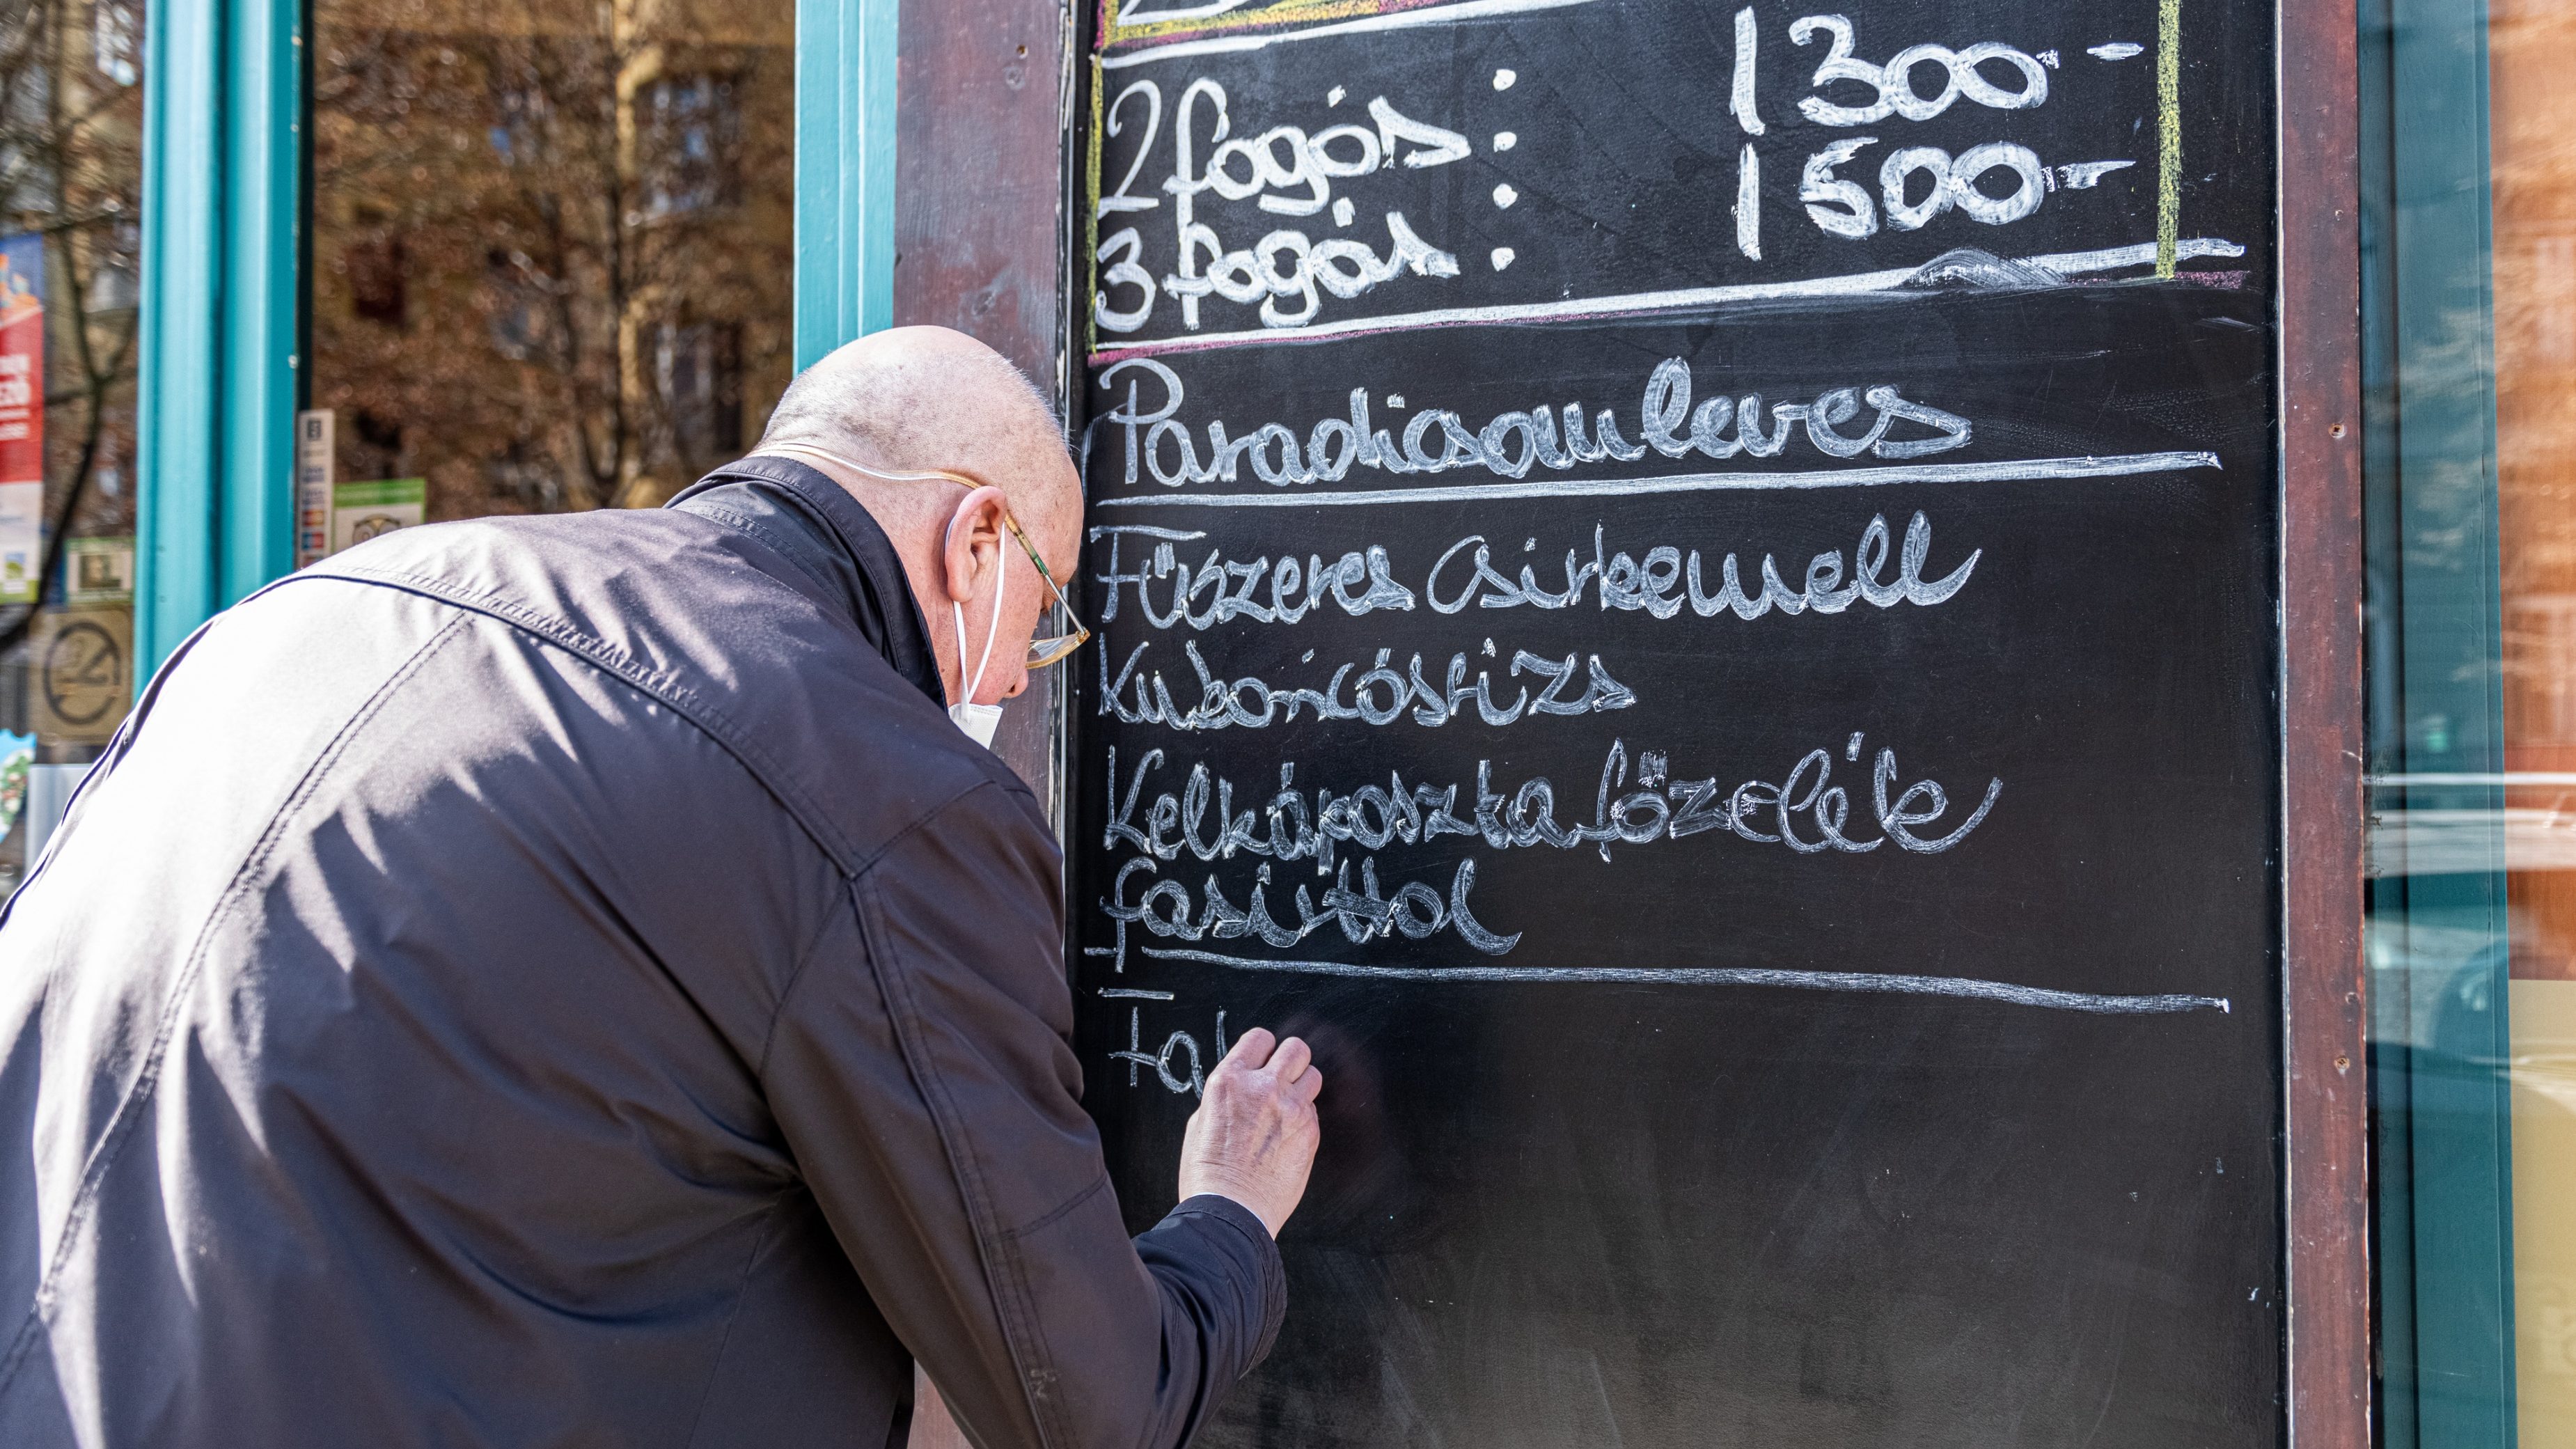 2 fogás: 1300.-
3 fogás: 1500.-
Paradicsomleves
Fűszeres csirkemell
Kukoricás rizs
Kelkáposzta főzelék
fasírttal
Fa